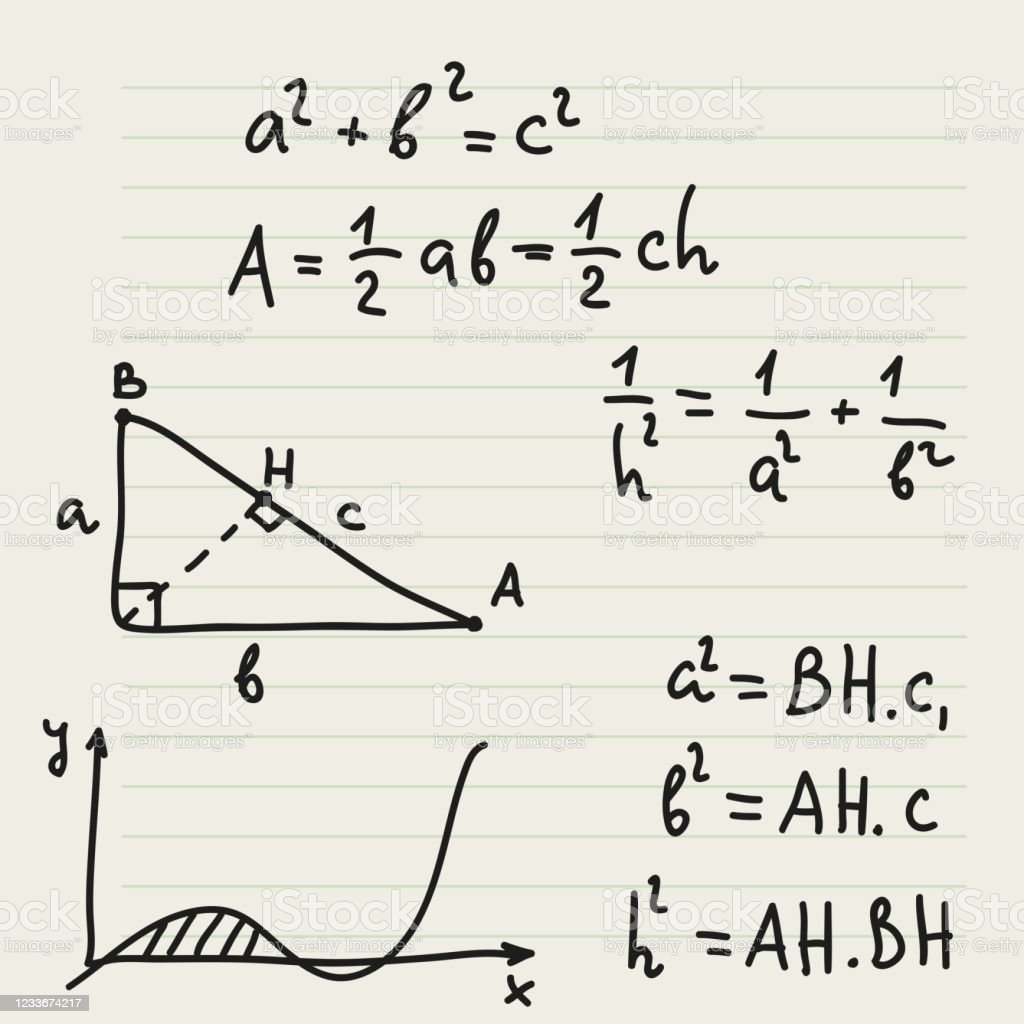 a² + b² = c²
A = 1/2 ab = 1/2 ch
1/h² = 1/a² + 1/b²
B
H
a
c
A
b
a² = BH.c,
b² = AH.c
h² = AH.BH
y
x
iStock
by Getty Images™
1233674217